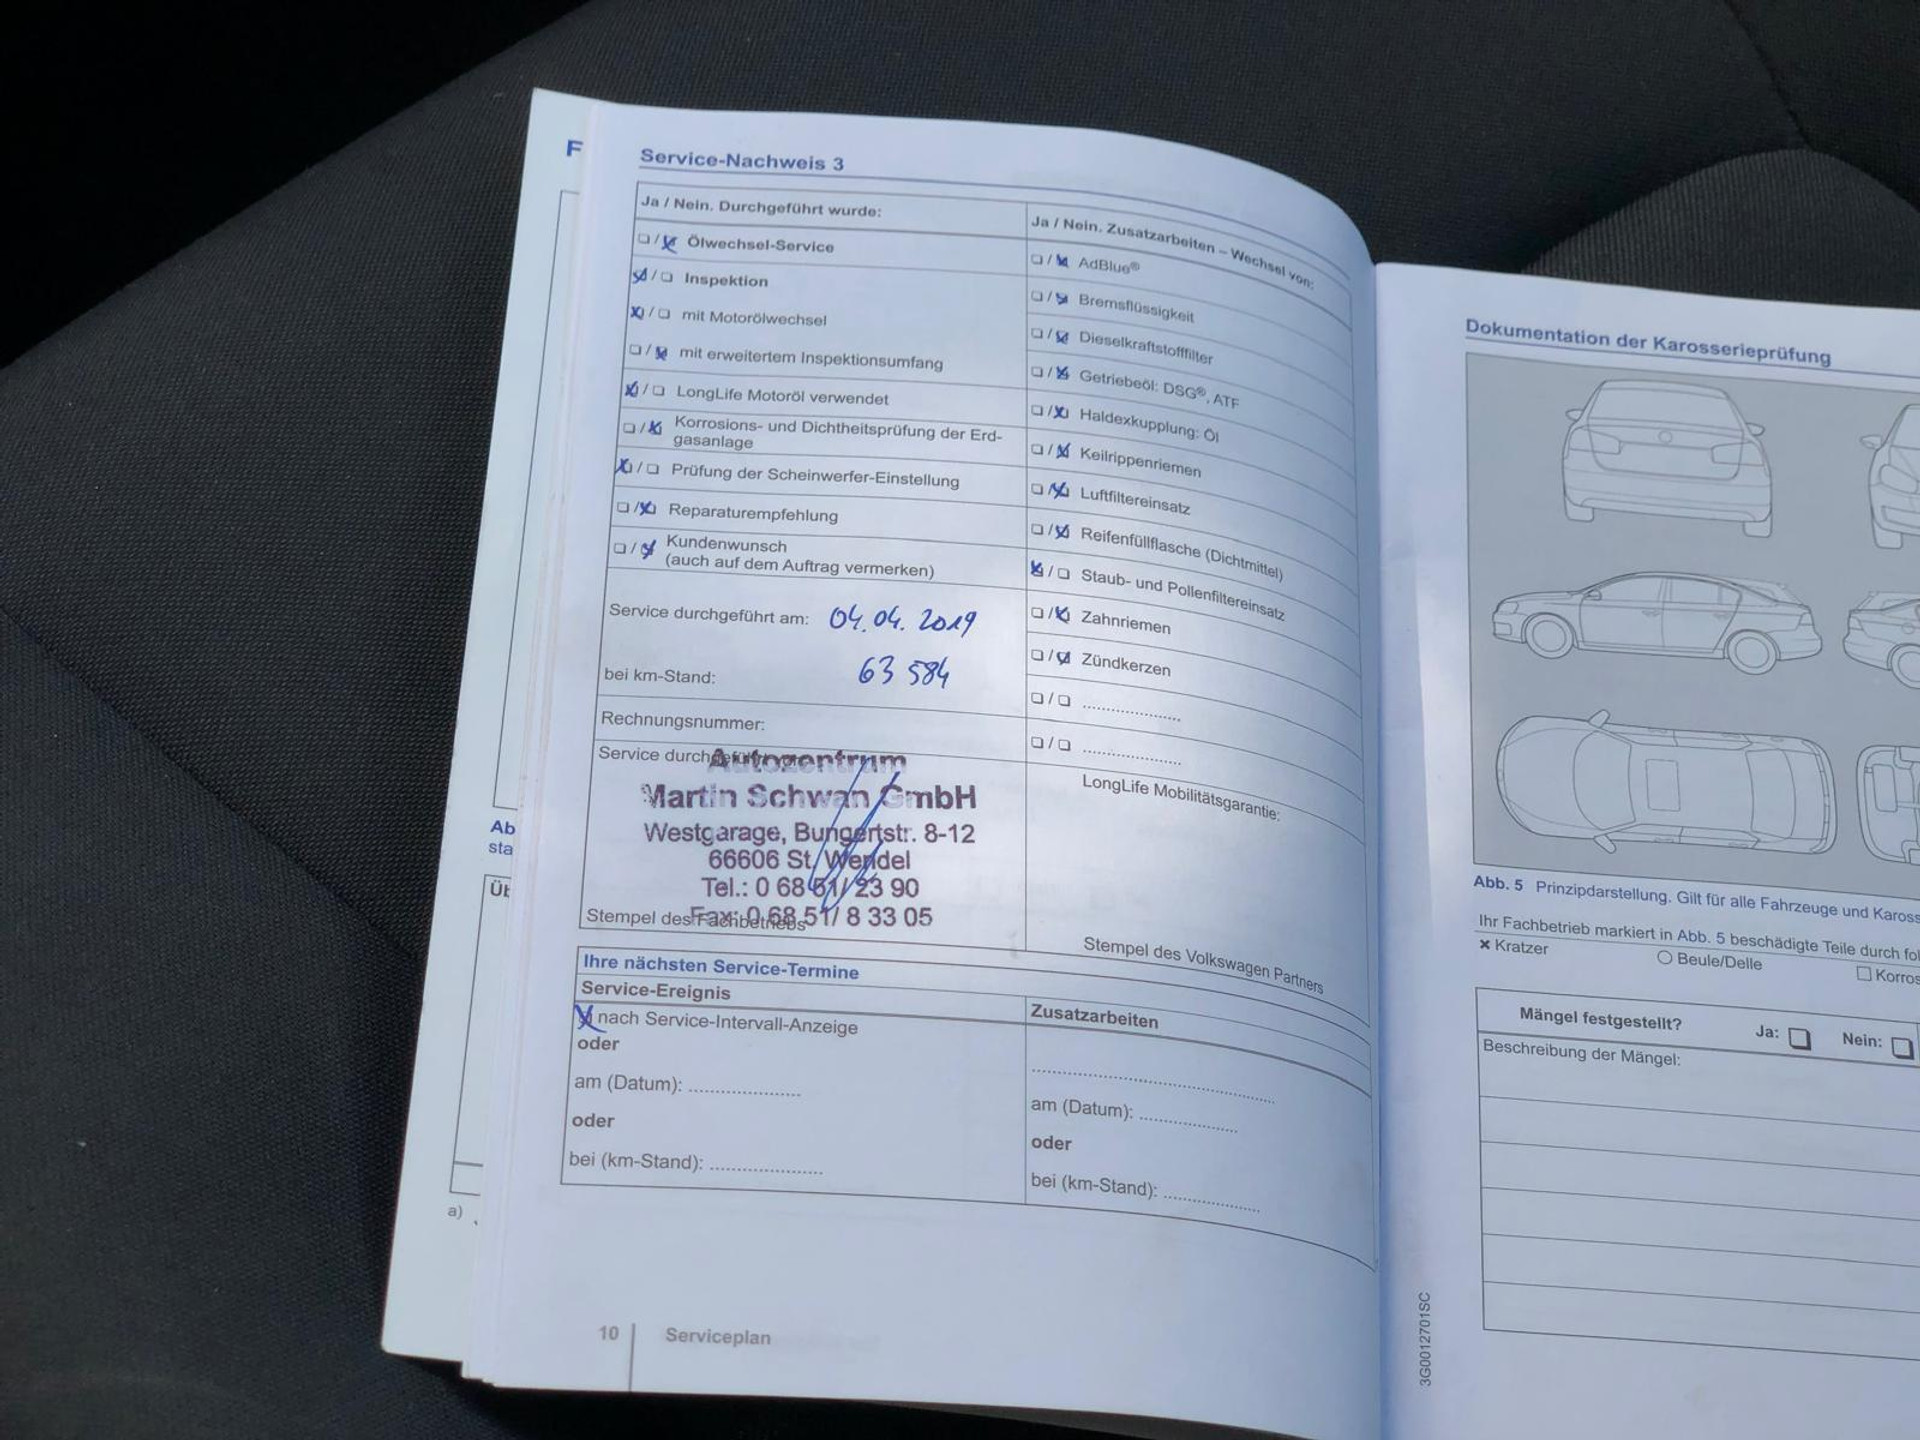 F
Ab
sta
Üb
a)
Service-Nachweis 3
Ja / Nein. Durchgeführt wurde:
❏ / ❏ Ölwechsel-Service
❏ / ❏ Inspektion
❏ / ❏ mit Motorölwechsel
❏ / ❏ mit erweitertem Inspektionsumfang
❏ / ❏ LongLife Motoröl verwendet
❏ / ❏ Korrosions- und Dichtheitsprüfung der Erd-
gasanlage
❏ / ❏ Prüfung der Scheinwerfer-Einstellung
❏ / ❏ Reparaturempfehlung
❏ / ❏ Kundenwunsch
(auch auf dem Auftrag vermerken)
Service durchgeführt am: 04.04.2019
bei km-Stand: 63 584
Rechnungsnummer:
Service durchgeführt von:
Autozentrum
Martin Schwan GmbH
Westgarage, Bungertstr. 8-12
66606 St. Wendel
Tel.: 0 68 51/ 23 90
Fax: 0 68 51/ 8 33 05
Stempel des Fachbetriebs
Ja / Nein. Zusatzarbeiten – Wechsel von:
❏ / ❏ AdBlue®
❏ / ❏ Bremsflüssigkeit
❏ / ❏ Dieselkraftstofffilter
❏ / ❏ Getriebeöl: DSG®, ATF
❏ / ❏ Haldexkupplung: Öl
❏ / ❏ Keilrippenriemen
❏ / ❏ Luftfiltereinsatz
❏ / ❏ Reifenfüllflasche (Dichtmittel)
❏ / ❏ Staub- und Pollenfiltereinsatz
❏ / ❏ Zahnriemen
❏ / ❏ Zündkerzen
❏ / ❏ ....................
❏ / ❏ ....................
LongLife Mobilitätsgarantie:
Stempel des Volkswagen Partners
Ihre nächsten Service-Termine
Service-Ereignis
❏ nach Service-Intervall-Anzeige
oder
am (Datum): ....................
oder
bei (km-Stand): ....................
Zusatzarbeiten
..................................................
am (Datum): ....................
oder
bei (km-Stand): ....................
10 Serviceplan
Dokumentation der Karosserieprüfung
Abb. 5 Prinzipdarstellung. Gilt für alle Fahrzeuge und Kaross
Ihr Fachbetrieb markiert in Abb. 5 beschädigte Teile durch fol
× Kratzer ○ Beule/Delle □ Korros
Mängel festgestellt? Ja: ❏ Nein: ❏
Beschreibung der Mängel:
3G0012701SC